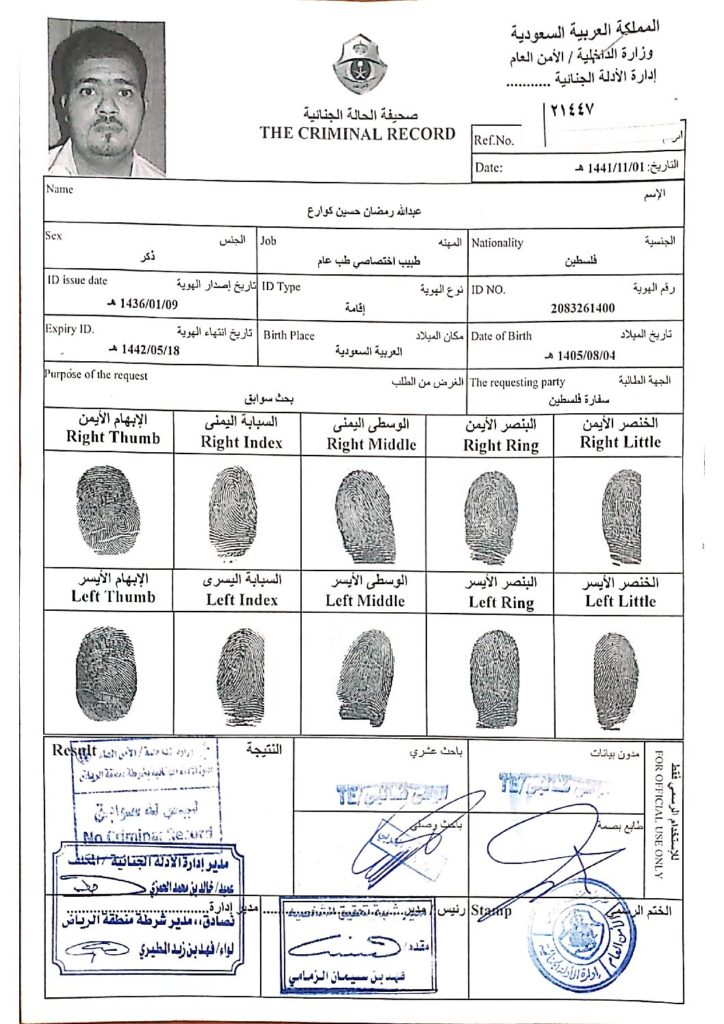 المملكة العربية السعودية
وزارة الداخلية / الأمن العام
إدارة الأدلة الجنائية ...........
صحيفة الحالة الجنائية
THE CRIMINAL RECORD
Ref.No. ٢١٤٤٧
Date: التاريخ: 1441/11/01 هـ
Name الإسم
عبدالله رمضان حسين كوارع
Sex الجنس Job المهنه Nationality الجنسية
ذكر طبيب اختصاصي طب عام فلسطين
ID issue date تاريخ إصدار الهوية ID Type نوع الهوية ID NO. رقم الهوية
1436/01/09 هـ إقامة 2083261400
Expiry ID. تاريخ انتهاء الهوية Birth Place مكان الميلاد Date of Birth تاريخ الميلاد
1442/05/18 هـ العربية السعودية 1405/08/04 هـ
Purpose of the request الغرض من الطلب The requesting party الجهة الطالبة
بحث سوابق سفارة فلسطين
الإبهام الأيمن السبابة اليمنى الوسطى اليمنى البنصر الأيمن الخنصر الأيمن
Right Thumb Right Index Right Middle Right Ring Right Little
الإبهام الأيسر السبابة اليسرى الوسطى الأيسر البنصر الأيسر الخنصر الأيسر
Left Thumb Left Index Left Middle Left Ring Left Little
Result النتيجة باحث عشري مدون بيانات
للإستخدام الرسمي فقط
FOR OFFICIAL USE ONLY
TE/ TE/
No Criminal Record
باحث وصلي طابع بصمة
مدير إدارة الأدلة الجنائية / المكلف
عميد/ خالد بن محمد
مدير إدارة رئيس/ مدير Stamp الختم الرسمي
نصادق،، مدير شرطة منطقة الرياض
لواء/ فهد بن زيد المطيري
مقدم/
فهد بن سليمان الزمامي
الأمن العام
إدارة الأدلة الجنائية